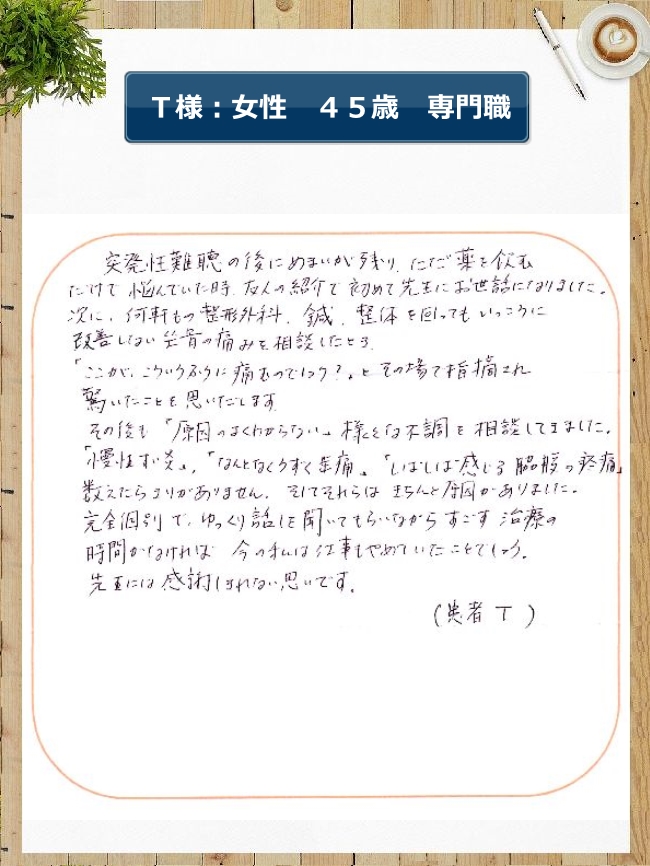 T様：女性　４５歳　専門職
突発性難聴の後にめまいが残り、ただ薬を飲む
だけで悩んでいた時、友人の紹介で初めて先生にお世話になりました。
次に、何軒もの整形外科、鍼、整体を回ってもいっこうに
改善しない坐骨の痛みを相談したところ、
「ここが、こういうふうに痛むのでしょう？」と その場で指摘され
驚いたことを思いだします。
その後も「原因のよくわからない」様々な不調を相談してきました。
「慢性すい炎」、「なんとなくうずく歯痛」「しばしば感じる脇腹の疼痛」
数えたらきりがありません。そしてそれらは きちんと原因がありました。
完全個別で、ゆっくり話しを聞いてもらいながらすごす 治療の
時間がなければ 今の私は仕事もやめていたことでしょう。
先生には感謝しきれない思いです。
（患者 T ）